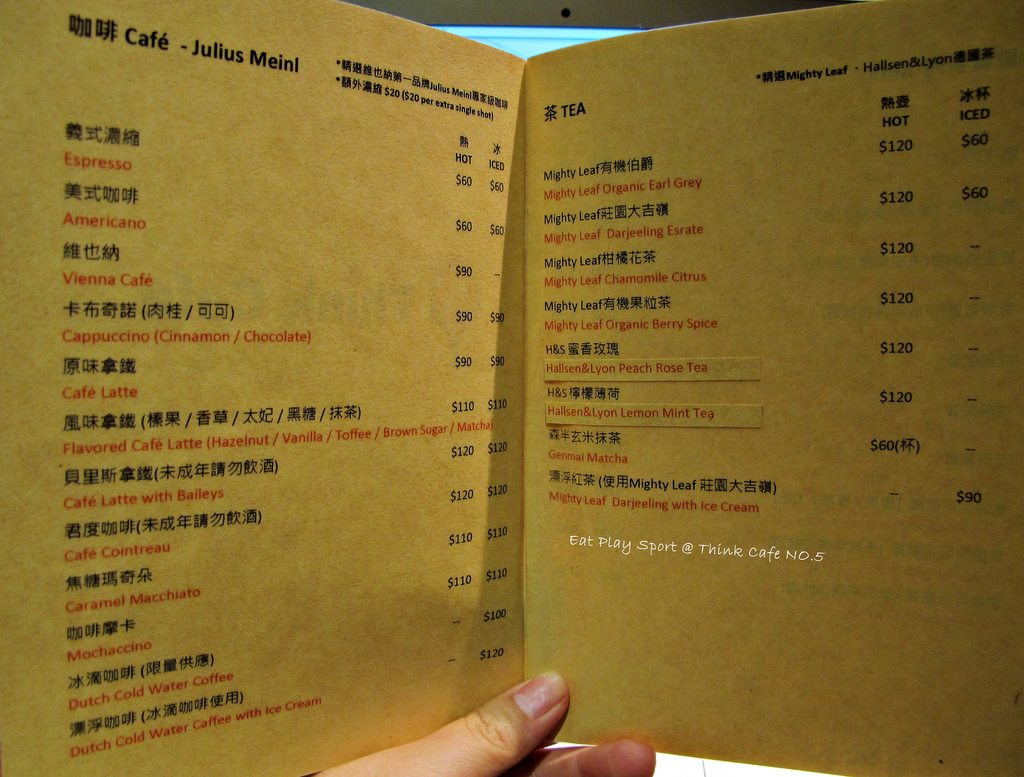 咖啡 Café - Julius Meinl
*精選維也納第一品牌Julius Meinl專家級咖啡
*額外濃縮 $20 ($20 per extra single shot)
熱 冰
HOT ICED
義式濃縮
Espresso $60 $60
美式咖啡
Americano $60 $60
維也納
Vienna Café $90 --
卡布奇諾 (肉桂 / 可可)
Cappuccino (Cinnamon / Chocolate) $90 $90
原味拿鐵
Café Latte $90 $90
風味拿鐵 (榛果 / 香草 / 太妃 / 黑糖 / 抹茶)
Flavored Café Latte (Hazelnut / Vanilla / Toffee / Brown Sugar / Matcha) $110 $110
貝里斯拿鐵(未成年請勿飲酒)
Café Latte with Baileys $120 $120
君度咖啡(未成年請勿飲酒)
Café Cointreau $120 $120
焦糖瑪奇朵
Caramel Macchiato $110 $110
咖啡摩卡
Mochaccino $110 $110
冰滴咖啡 (限量供應)
Dutch Cold Water Coffee -- $100
漂浮咖啡 (冰滴咖啡使用)
Dutch Cold Water Caffee with Ice Cream -- $120
*精選Mighty Leaf 、Hallsen&Lyon德國茶
茶 TEA
熱壺 冰杯
HOT ICED
Mighty Leaf有機伯爵 $120 $60
Mighty Leaf Organic Earl Grey
Mighty Leaf莊園大吉嶺 $120 $60
Mighty Leaf Darjeeling Esrate
Mighty Leaf柑橘花茶 $120 --
Mighty Leaf Chamomile Citrus
Mighty Leaf有機果粒茶 $120 --
Mighty Leaf Organic Berry Spice
H&S 蜜香玫瑰 $120 --
Hallsen&Lyon Peach Rose Tea
H&S 檸檬薄荷 $120 --
Hallsen&Lyon Lemon Mint Tea
森半玄米抹茶 $60(杯) --
Genmai Matcha
漂浮紅茶 (使用Mighty Leaf 莊園大吉嶺) -- $90
Mighty Leaf Darjeeling with Ice Cream
Eat Play Sport @ Think Cafe NO.5